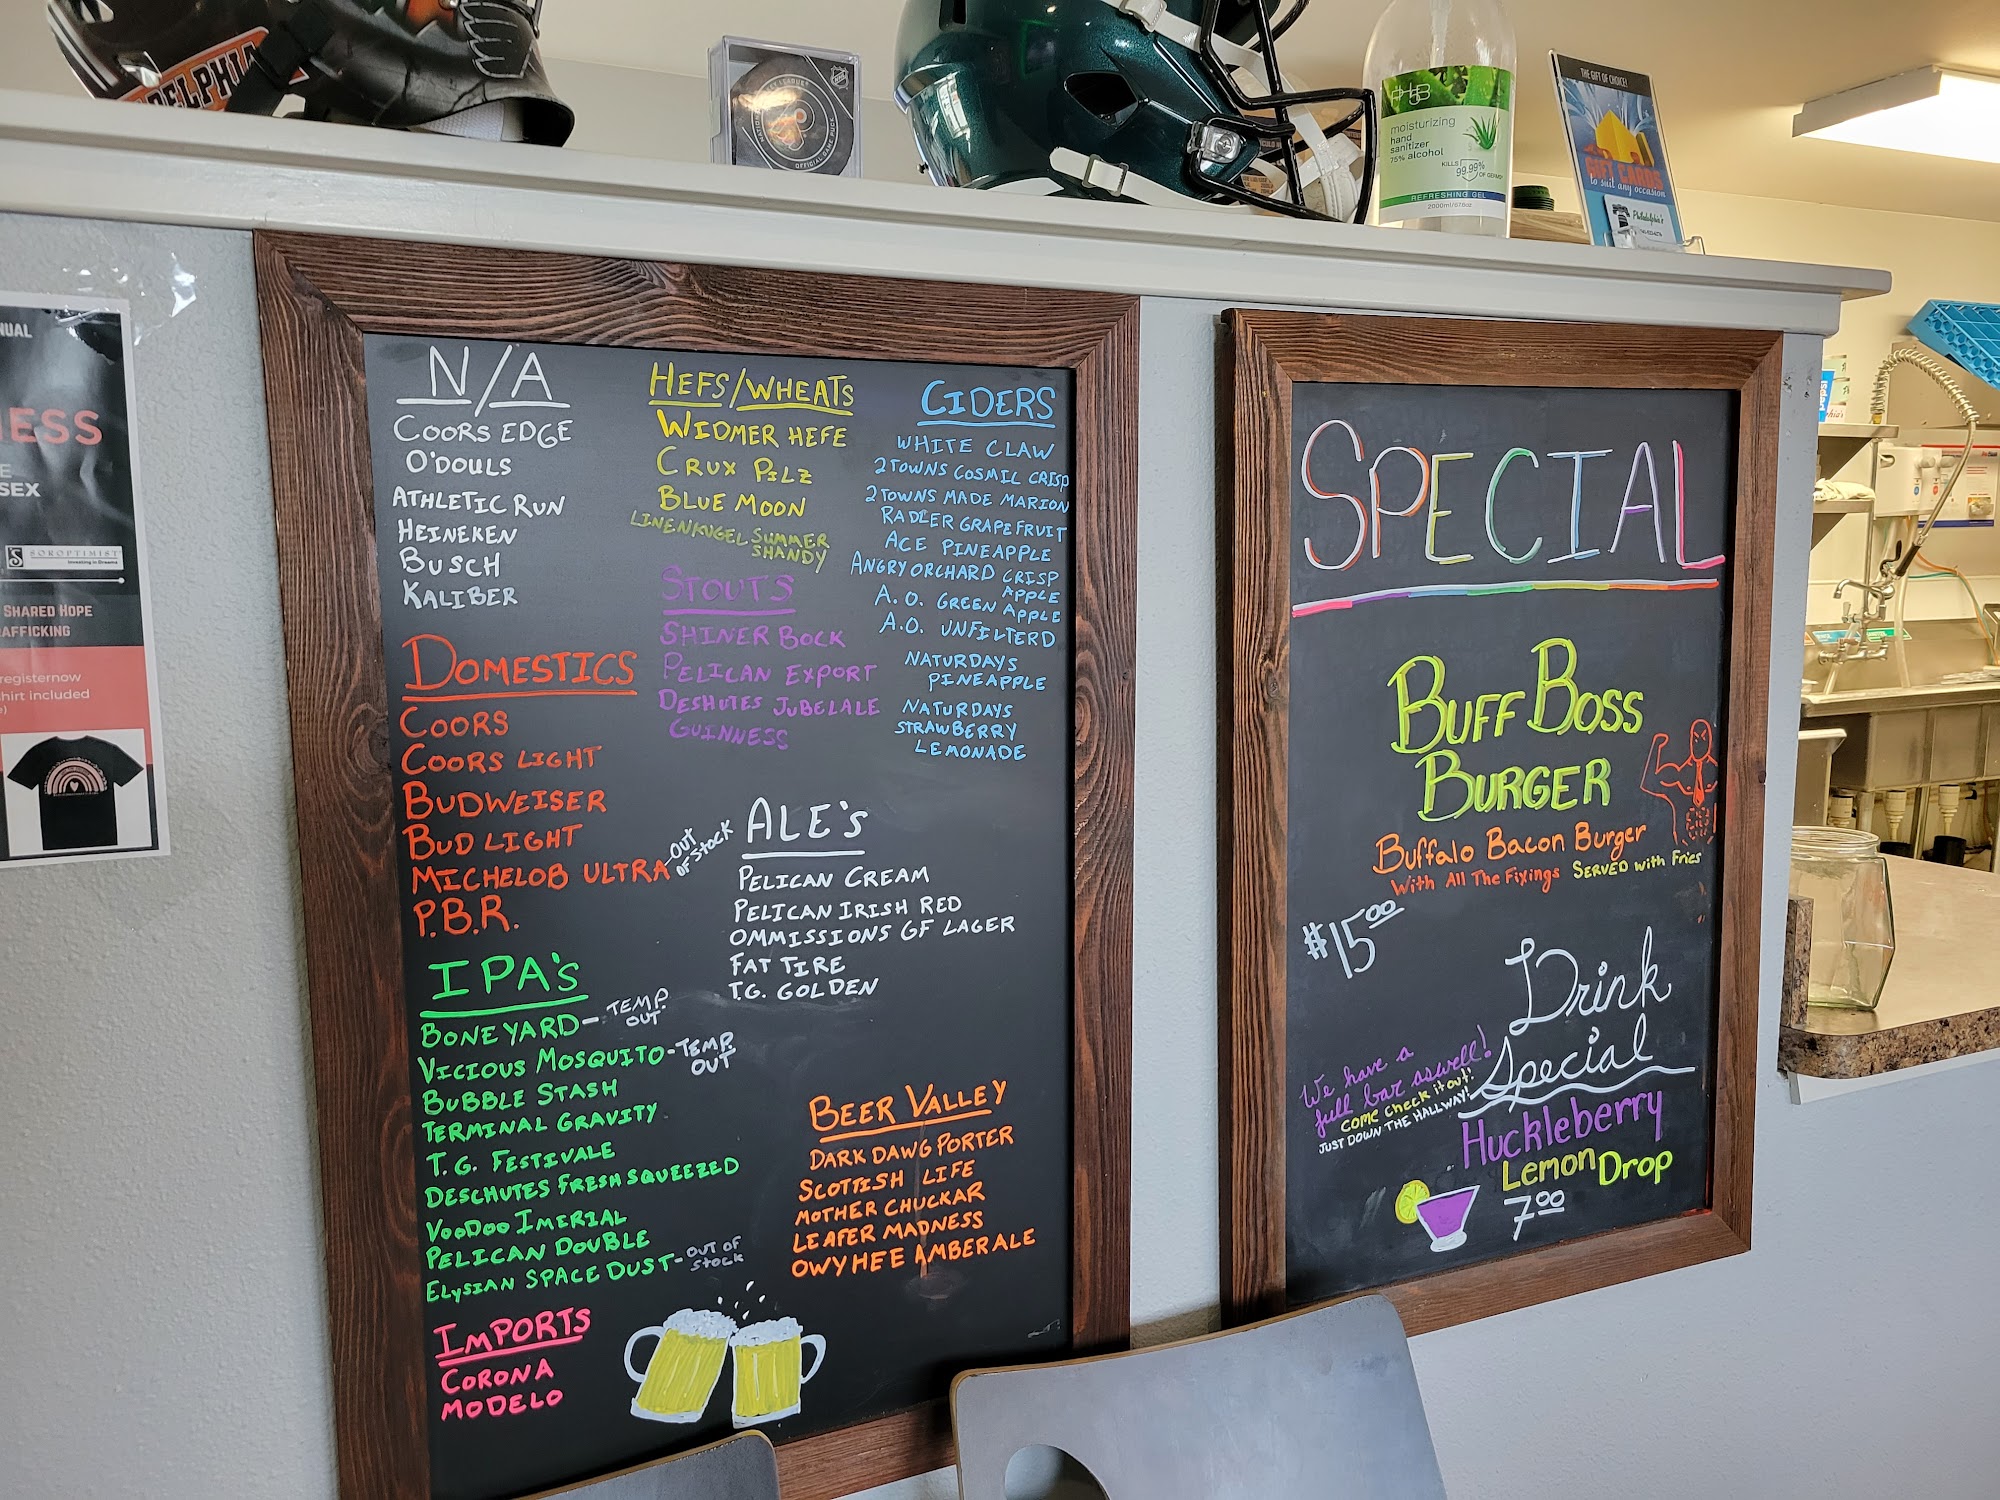 DELPHIA
NHL
OFFICIAL GAME PUCK
moisturizing
hand
sanitizer
75% alcohol
KILLS
99.99%
OF GERMS*
REFRESHING GEL
2000ml/67.6oz
THE GIFT OF CHOICE!
GIFT CARDS
to suit any occasion
Philadelphia's
NUAL
NESS
E
SEX
SOROPTIMIST
Investing in Dreams
SHARED HOPE
AFFICKING
registernow
hirt included
e)
pepsi
N/A
COORS EDGE
O'DOULS
ATHLETIC RUN
HEINEKEN
BUSCH
KALIBER
DOMESTICS
COORS
COORS LIGHT
BUDWEISER
BUD LIGHT
MICHELOB ULTRA-OUT OF STOCK
P.B.R.
IPA's
BONEYARD-TEMP. OUT
VICIOUS MOSQUITO-TEMP. OUT
BUBBLE STASH
TERMINAL GRAVITY
T.G. FESTIVALE
DESCHUTES FRESH SQUEEZED
VOODOO IMERIAL
PELICAN DOUBLE
ELYSIAN SPACE DUST-OUT OF STOCK
IMPORTS
CORONA
MODELO
HEFS/WHEATS
WIDMER HEFE
CRUX PILZ
BLUE MOON
LINENKUGEL SUMMER
SHANDY
STOUTS
SHINER BOCK
PELICAN EXPORT
DESHUTES JUBELALE
GUINNESS
CIDERS
WHITE CLAW
2 TOWNS COSMIC CRISP
2 TOWNS MADE MARION
RADLER GRAPEFRUIT
ACE PINEAPPLE
ANGRY ORCHARD CRISP
APPLE
A.O. GREEN APPLE
A.O. UNFILTERD
NATURDAYS
PINEAPPLE
NATURDAYS
STRAWBERRY
LEMONADE
ALE's
PELICAN CREAM
PELICAN IRISH RED
OMMISSIONS GF LAGER
FAT TIRE
T.G. GOLDEN
BEER VALLEY
DARK DAWG PORTER
SCOTTISH LIFE
MOTHER CHUCKAR
LEAFER MADNESS
OWYHEE AMBERALE
SPECIAL
BUFF BOSS
BURGER
Buffalo Bacon Burger
With All The Fixings SERVED with Fries
$15.00
Drink
Special
We have a
full bar aswell!
COME check it out!
JUST DOWN THE HALLWAY!
Huckleberry
Lemon Drop
7.00